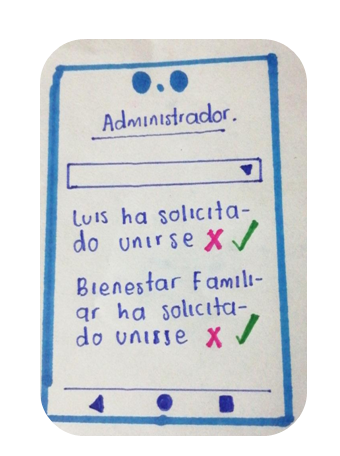 Administrador.
Luis ha solicita-
do unirse X ✓
Bienestar Famili-
ar ha solicita-
do unisse X ✓